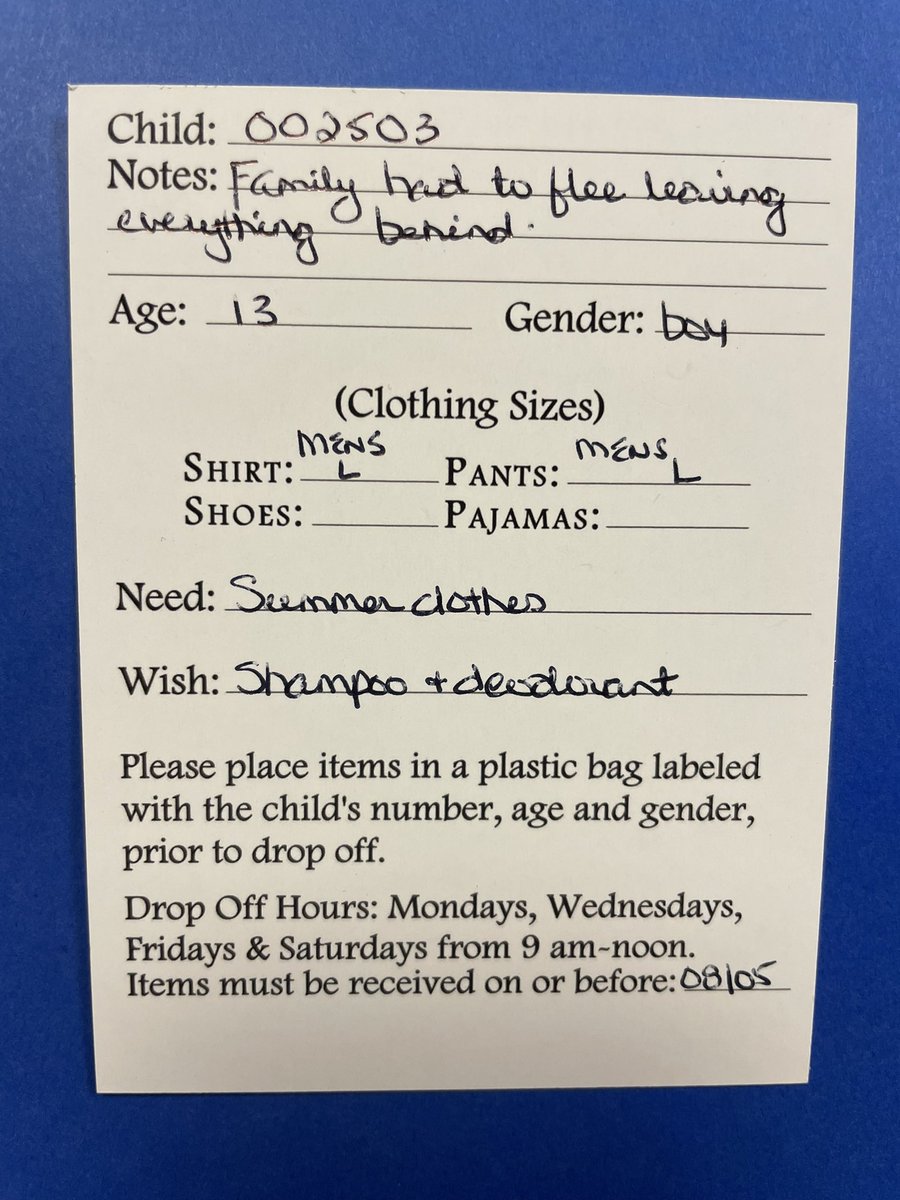 Child: 002503
Notes: Family had to flee leaving
everything behind.
Age: 13 Gender: boy
(Clothing Sizes)
MENS MENS
SHIRT: L PANTS: L
SHOES: PAJAMAS:
Need: Summer clothes
Wish: Shampoo + deodorant
Please place items in a plastic bag labeled
with the child's number, age and gender,
prior to drop off.
Drop Off Hours: Mondays, Wednesdays,
Fridays & Saturdays from 9 am-noon.
Items must be received on or before: 08/05